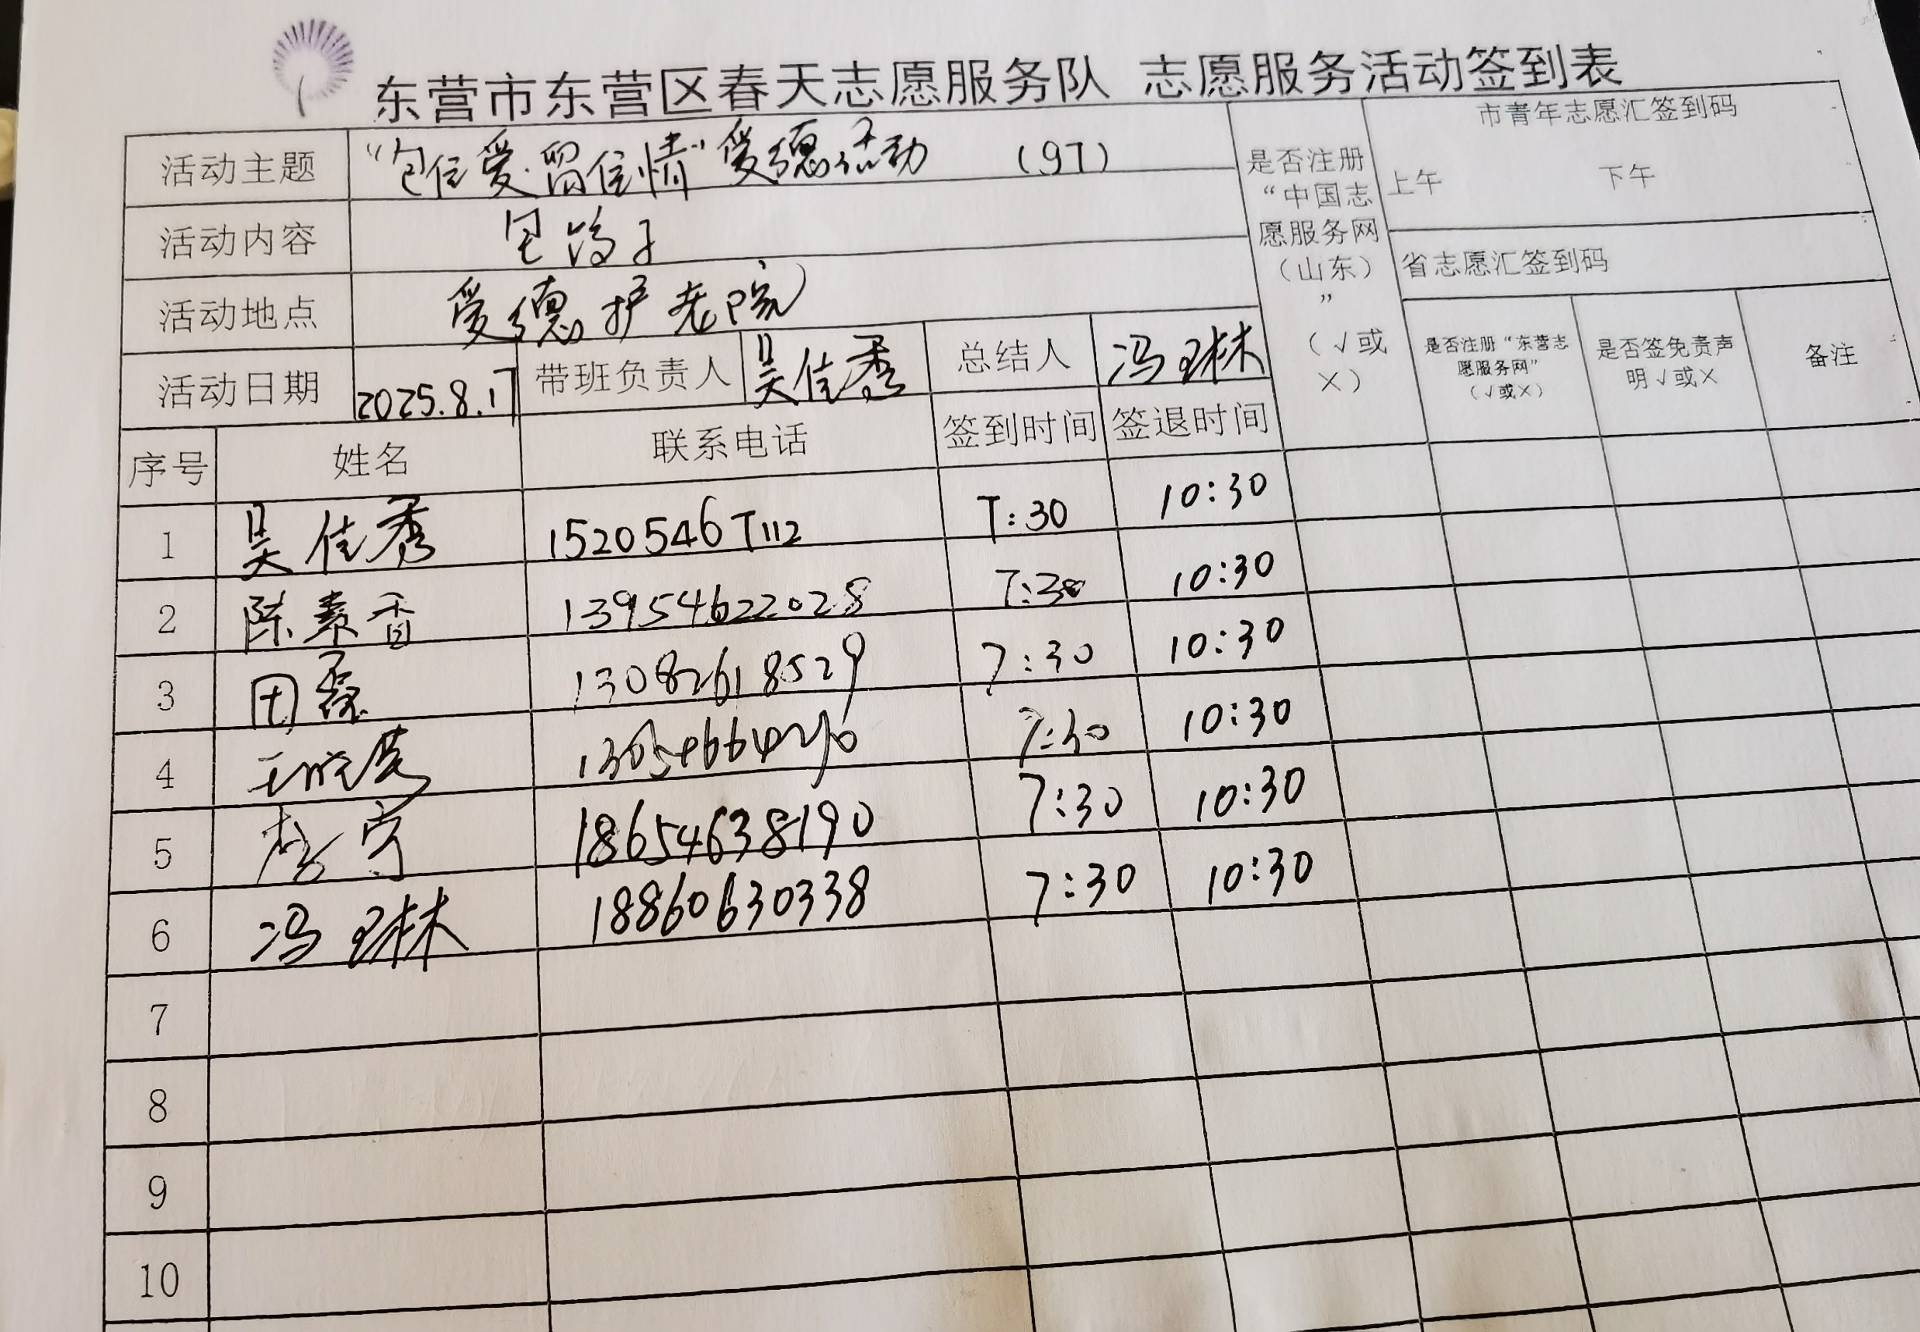 东营市东营区春天志愿服务队 志愿服务活动签到表
活动主题 “包住爱·留住情”爱德活动 (97)
活动内容 包饺子
活动地点 爱德护老院
活动日期 2025.8.17 带班负责人 吴佳秀 总结人 冯琳
是否注册“中国志愿服务网（山东）”（√或×）
市青年志愿汇签到码
上午 下午
省志愿汇签到码
是否注册“东营志愿服务网”（√或×） 是否签免责声明√或× 备注
序号 姓名 联系电话 签到时间 签退时间
1 吴佳秀 15205467112 7:30 10:30
2 陈素香 13954622028 7:30 10:30
3 田磊 13082618529 7:30 10:30
4 7:30 10:30
5 18654638190 7:30 10:30
6 冯琳 18860630338 7:30 10:30
7
8
9
10